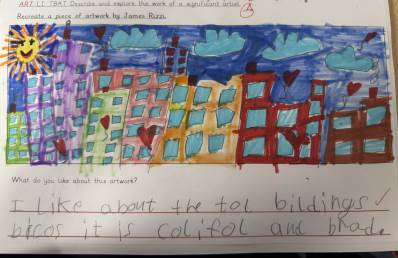 ART LI TBAT Describe and explore the work of a significant artist.
Recreate a piece of artwork by James Rizzi.
What do you like about this artwork?
I like about the tol bildings
bicos it is colifol and brad.